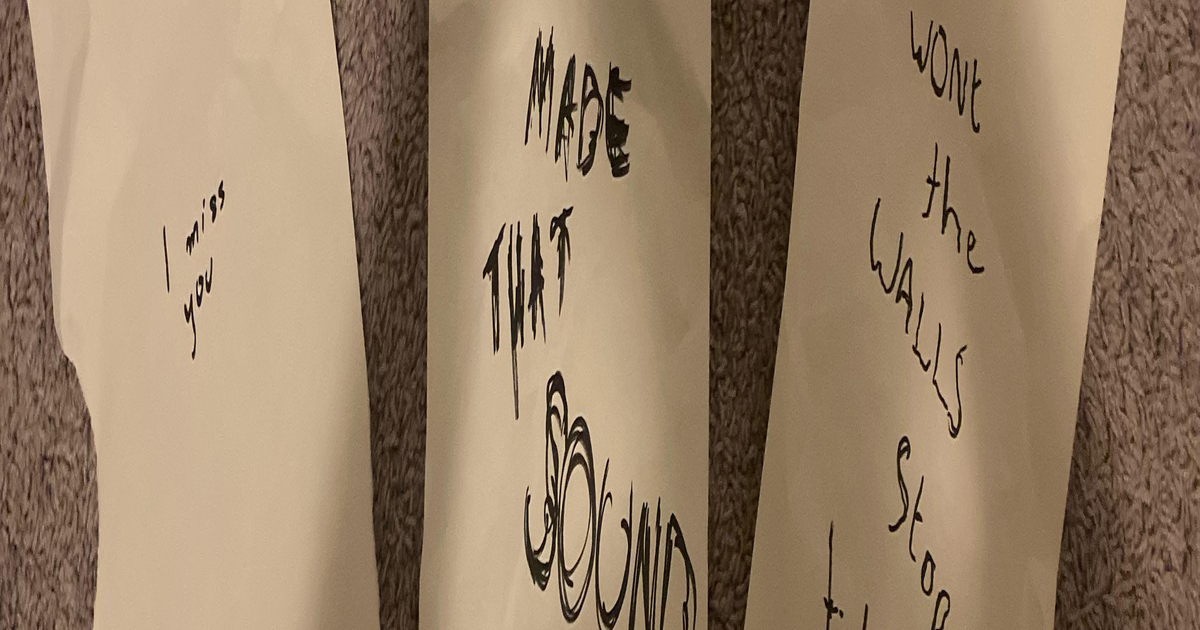 I miss
you
MADE
THAT
SOUND
WONt
the
WALLS
Stop